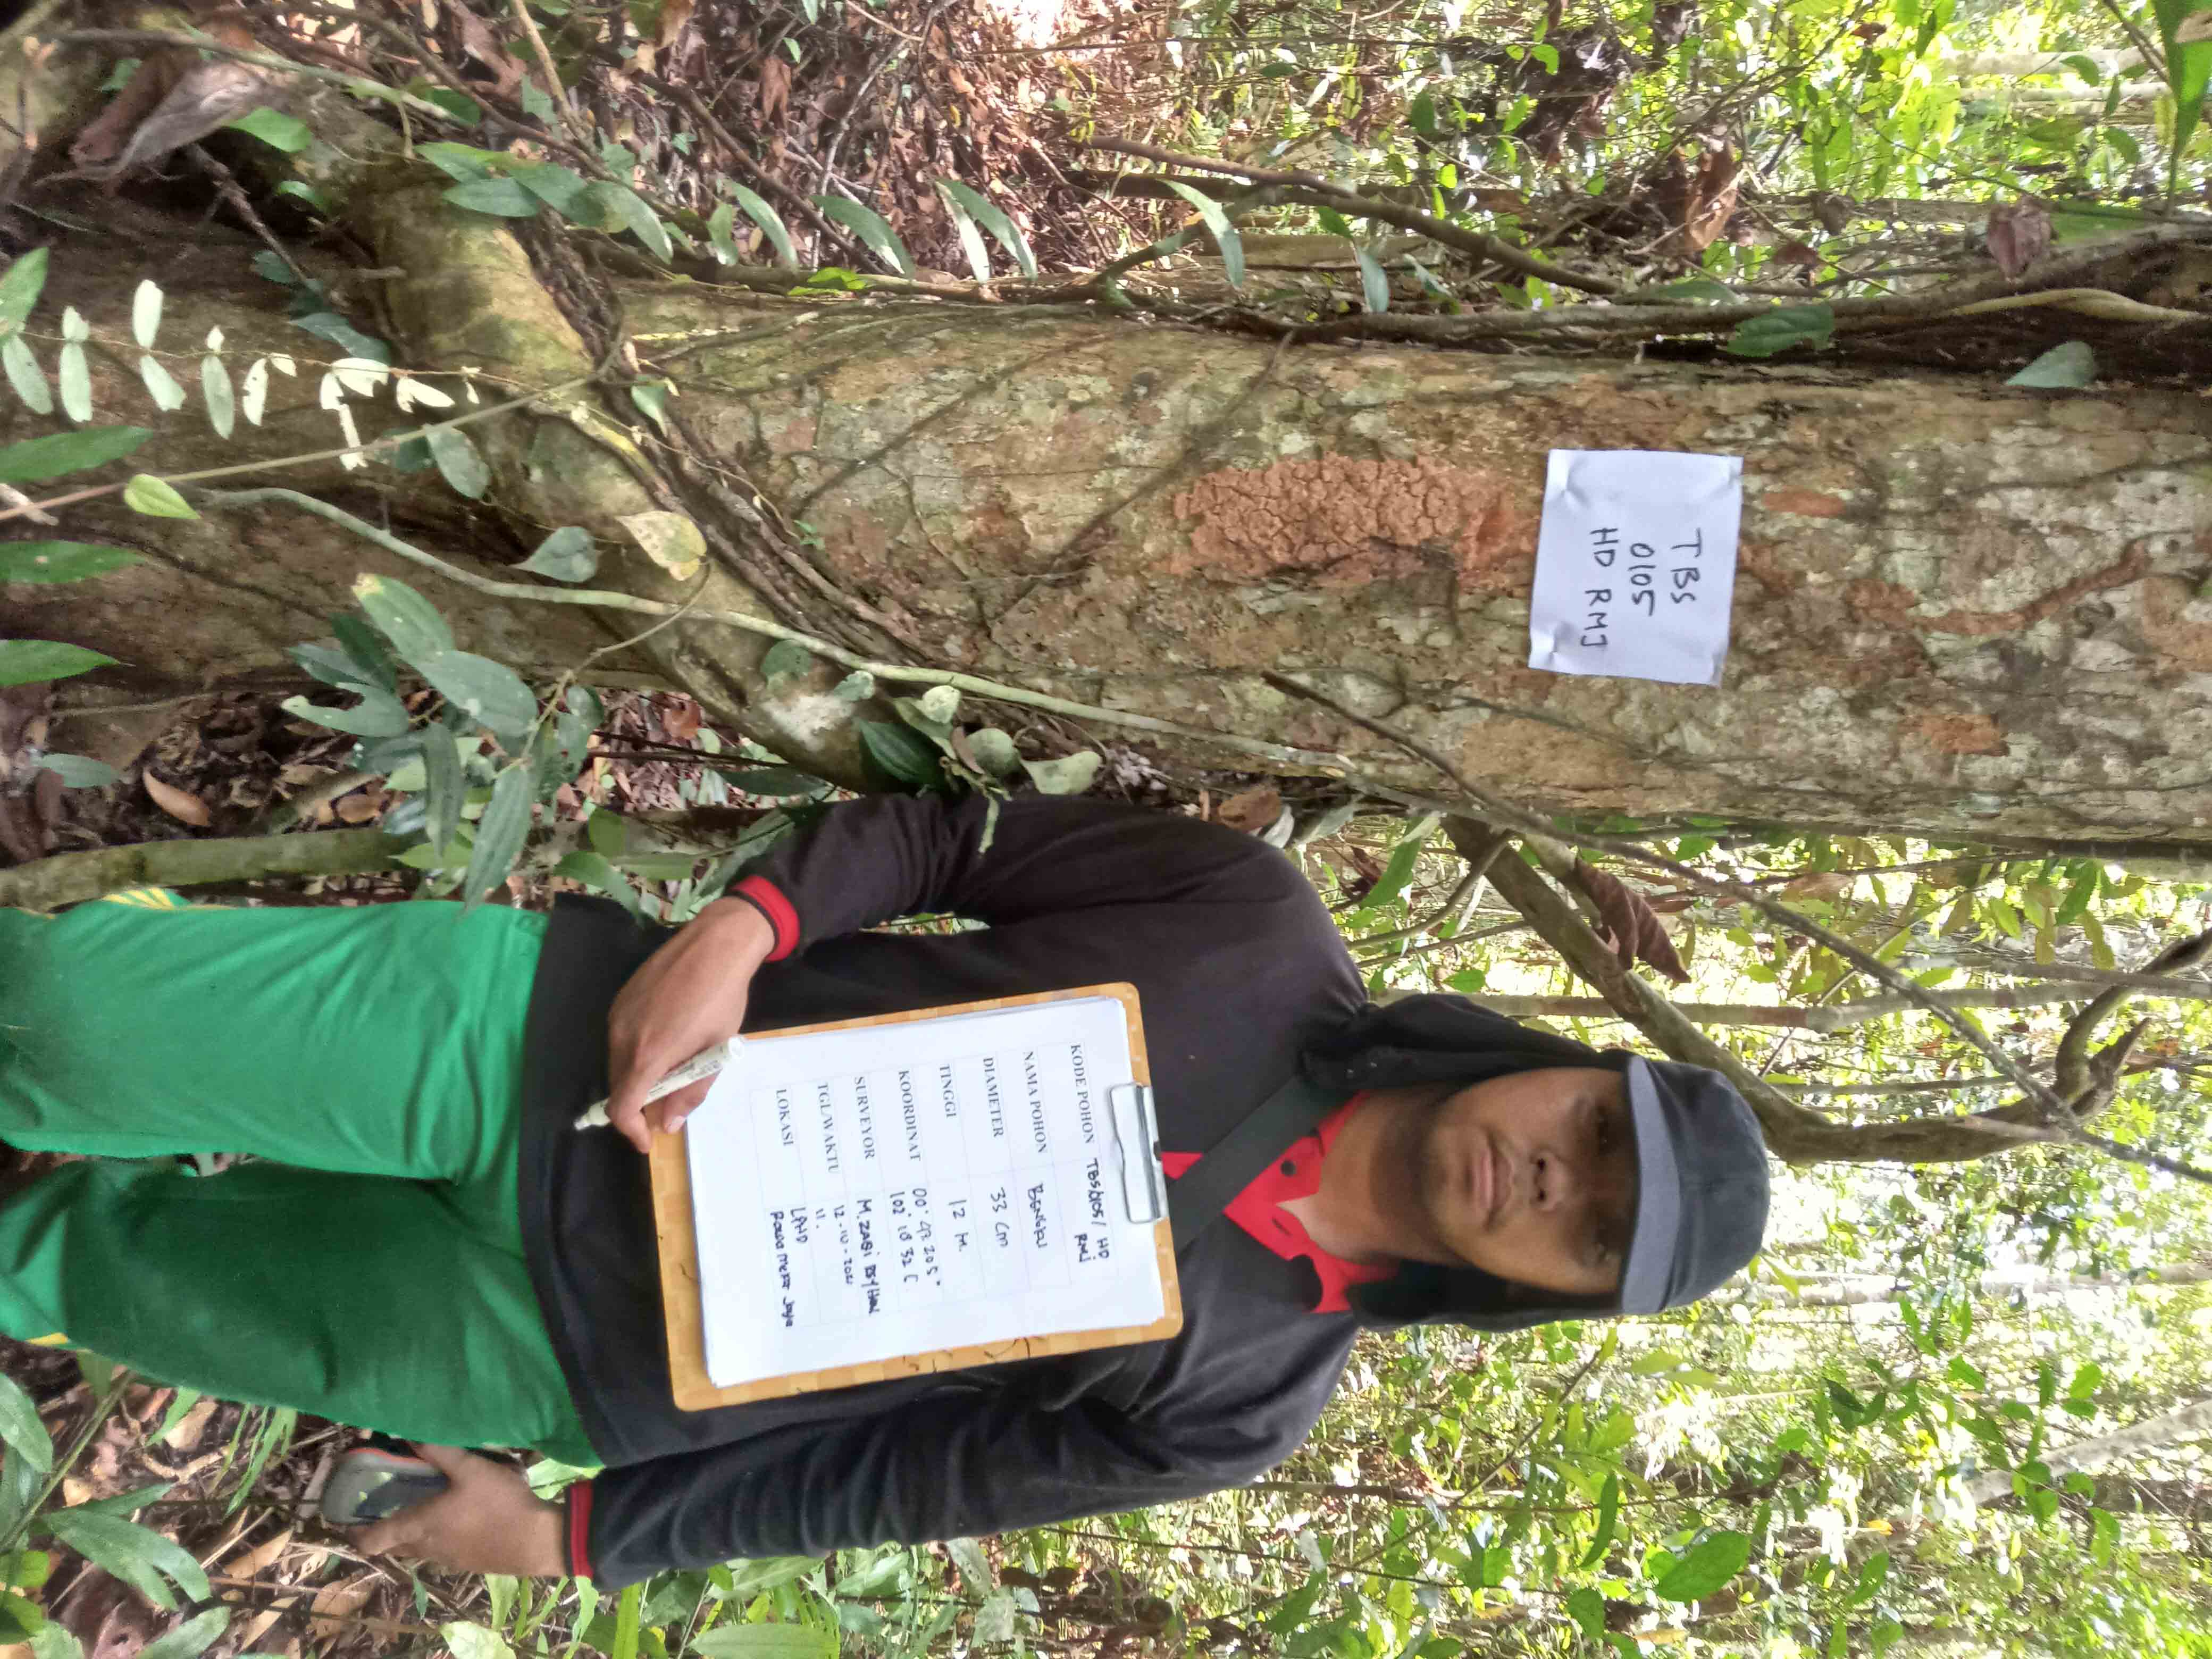 TBS
0105
HD RMJ
KODE POHON TBS/0105/ HD RMJ
NAMA POHON BENGKU
DIAMETER 33 cm
TINGGI 12 M.
KOORDINAT
102
SURVEYOR M. ZABI
TGL/WAKTU 12-10-2021
11.
LOKASI LPHD
Rawa Mekar Jaya